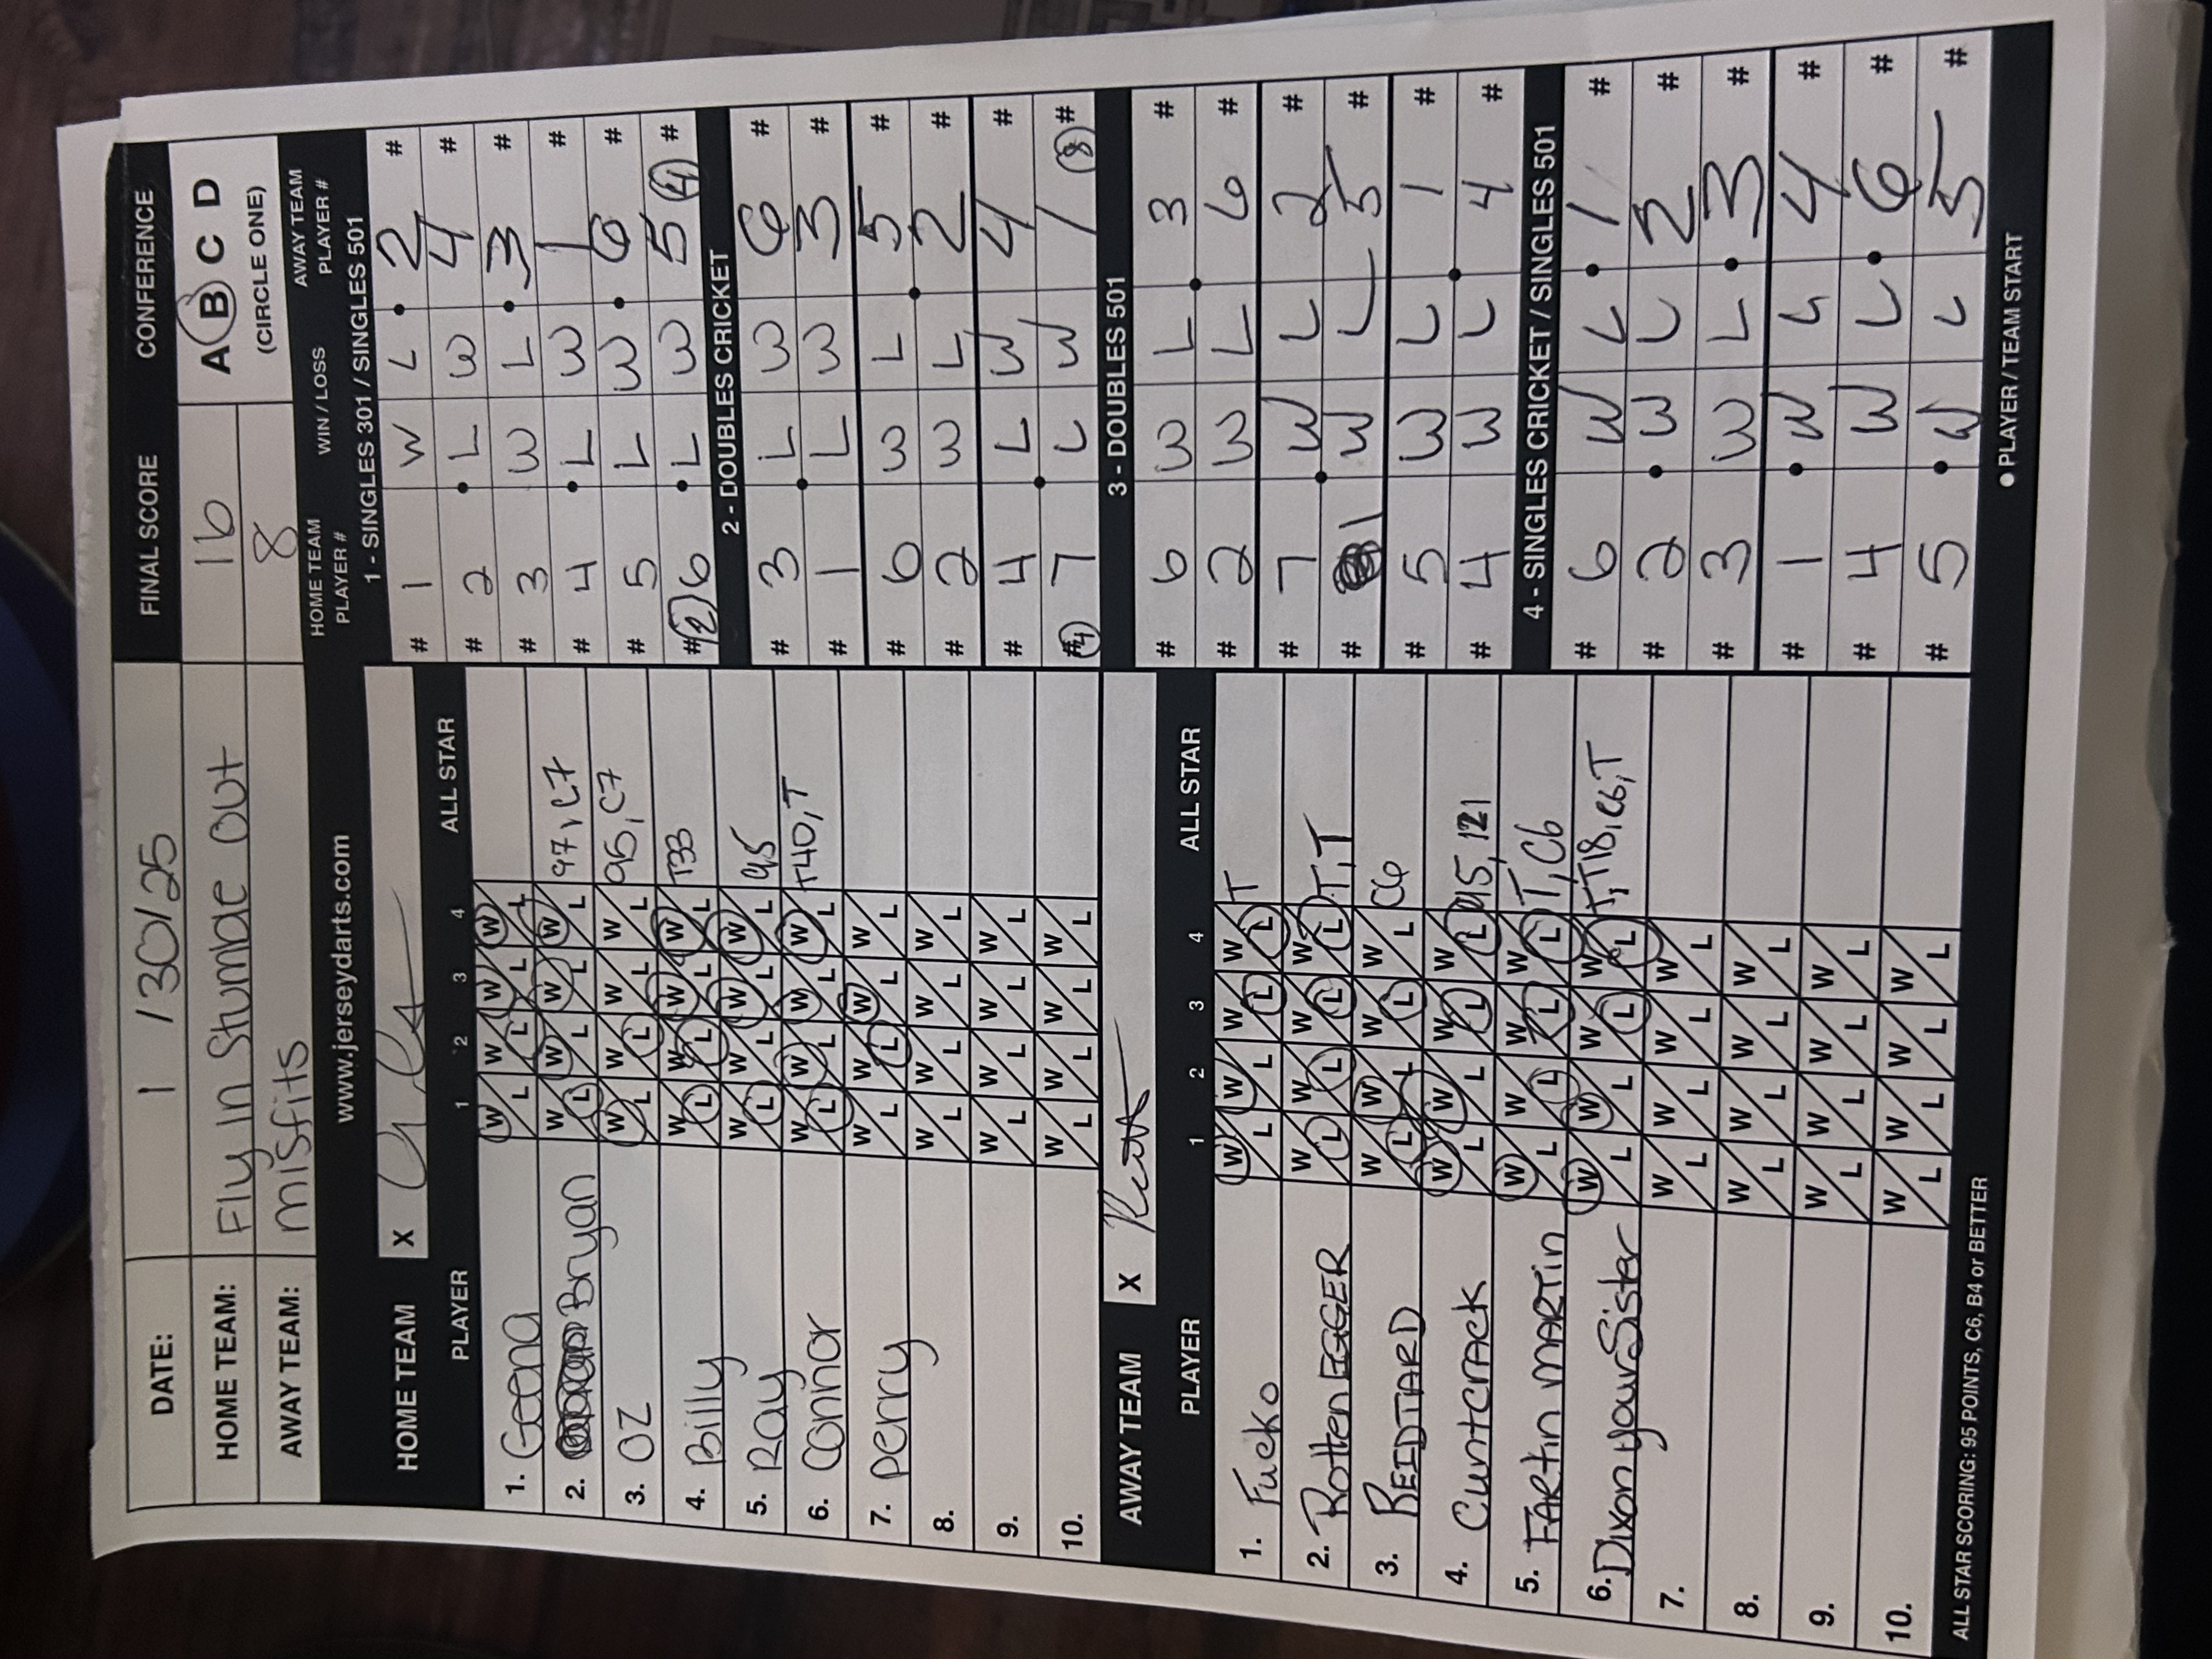 DATE: 1/30/25 FINAL SCORE CONFERENCE
HOME TEAM: Fly In Stumble OUt 16 A B C D
AWAY TEAM: misfits 8 (CIRCLE ONE)
www.jerseydarts.com
HOME TEAM X
PLAYER 1 2 3 4 ALL STAR
1. Geena W L W L W L W L
2. Bryan W L W L W L W L 97, C7
3. OZ W L W L W L W L 95, C7
4. Billy W L W L W L W L T33
5. Ray W L W L W L W L 95
6. Connor W L W L W L W L T40, T
7. perry W L W L W L W L
8. W L W L W L W L
9. W L W L W L W L
10. W L W L W L W L
AWAY TEAM X
PLAYER 1 2 3 4 ALL STAR
1. Fucko W L W L W L W L T
2. Rotten EGGER W L W L W L W L T, T
3. REIDTARD W L W L W L W L C6
4. Cuntcrack W L W L W L W L 121
5. FARtin mARTin W L W L W L W L T, C6
6. Dixon your Sister W L W L W L W L T, T18, C6, T
7. W L W L W L W L
8. W L W L W L W L
9. W L W L W L W L
10. W L W L W L W L
ALL STAR SCORING: 95 POINTS, C6, B4 or BETTER
HOME TEAM PLAYER # WIN / LOSS AWAY TEAM PLAYER #
1 - SINGLES 301 / SINGLES 501
# 1 W L 2 #
# 2 L W 4 #
# 3 W L 3 #
# 4 L W 1 #
# 5 L W 6 #
# 2 6 L W 5 4 #
2 - DOUBLES CRICKET
# 3 L W 6 #
# 1 L W 3 #
# 6 W L 5 #
# 2 W L 2 #
# 4 L W 4 #
# 4 7 L W 1 8 #
3 - DOUBLES 501
# 6 W L 3 #
# 2 W L 6 #
# 7 W L 2 #
# 1 W L 5 #
# 5 W L 1 #
# 4 W L 4 #
4 - SINGLES CRICKET / SINGLES 501
# 6 W L 1 #
# 2 W L 2 #
# 3 W L 3 #
# 1 W L 4 #
# 4 W L 6 #
# 5 W L 5 #
● PLAYER / TEAM START